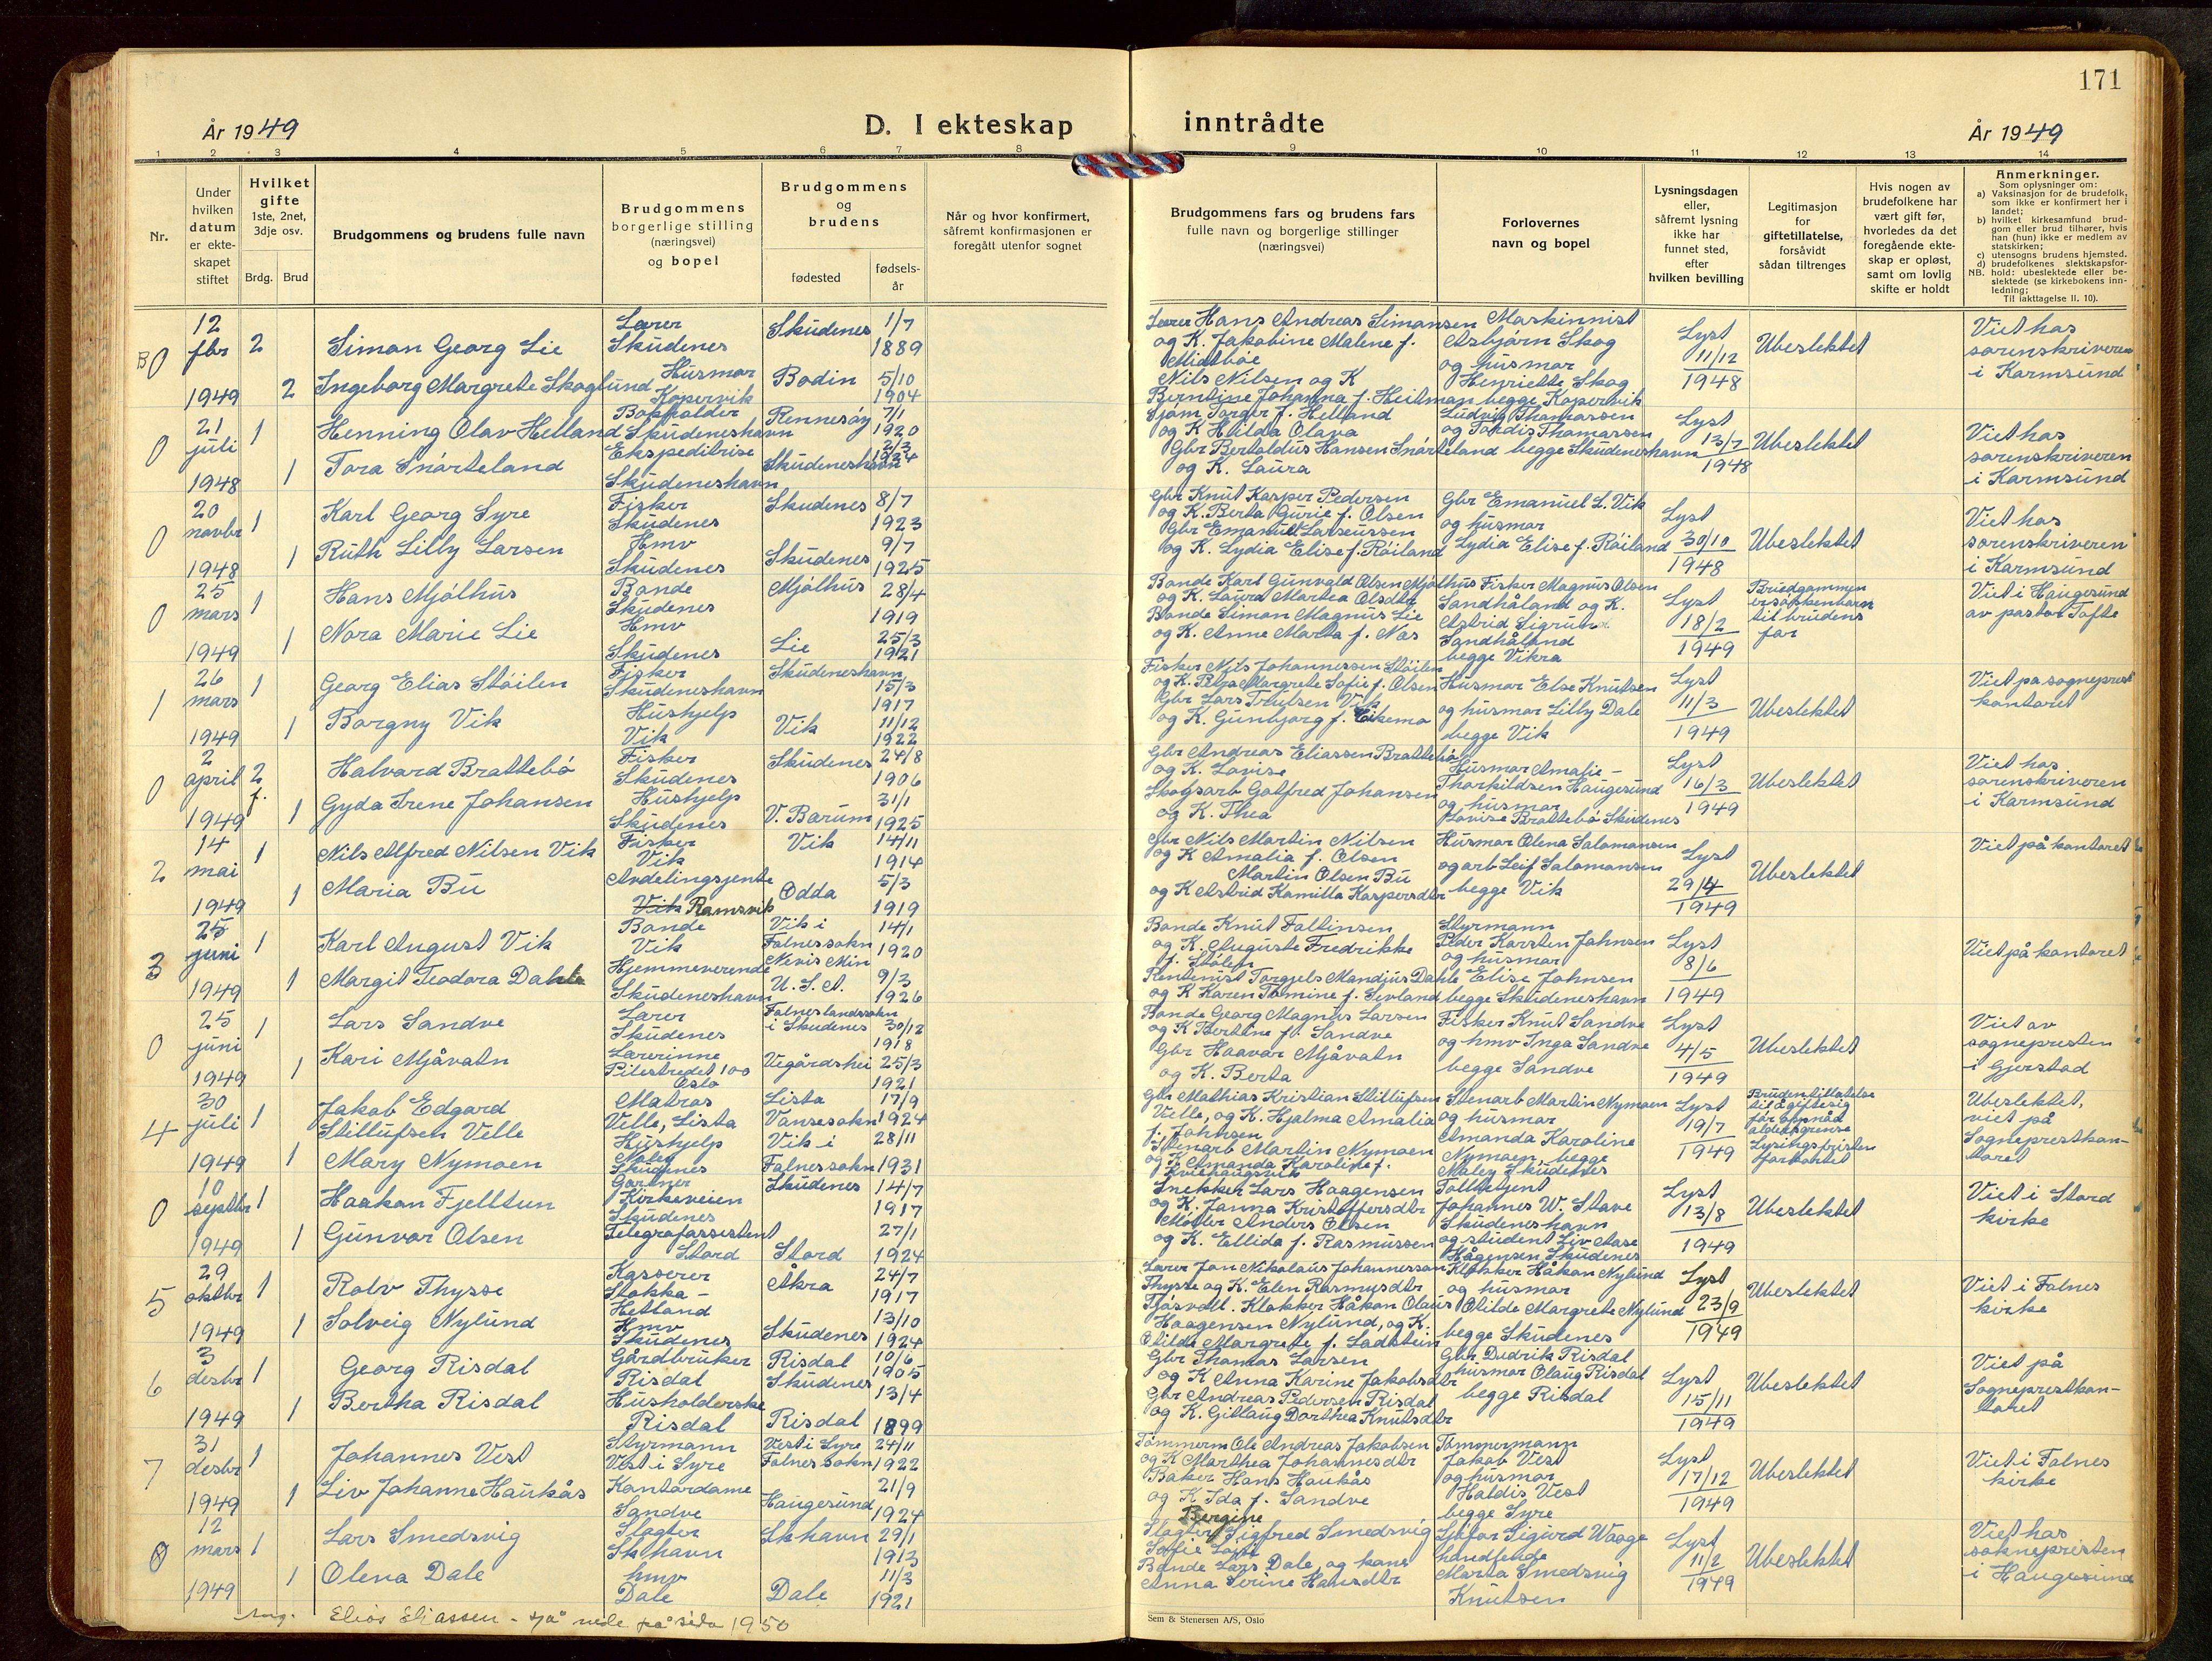 171
År 1949
D. I ekteskap inntrådte
År 1949
1 2 3 4 5 6 7 8 9 10 11 12 13 14
Nr.
Under hvilken datum er ekteskapet stiftet
Hvilket gifte 1ste, 2net, 3dje osv.
Brdg. Brud
Brudgommens og brudens fulle navn
Brudgommens borgerlige stilling (næringsvei) og bopel
Brudgommens og brudens
fødested
fødselsår
Når og hvor konfirmert, såfremt konfirmasjonen er foregått utenfor sognet
Brudgommens fars og brudens fars fulle navn og borgerlige stillinger (næringsvei)
Forlovernes navn og bopel
Lysningsdagen eller, såfremt lysning ikke har funnet sted, efter hvilken bevilling
Legitimasjon for giftetillatelse, forsåvidt sådan tiltrenges
Hvis nogen av brudefolkene har vært gift før, hvorledes da det foregående ekteskap er opløst, samt om lovlig skifte er holdt
Anmerkninger.
Som oplysninger om:
a) Vaksinasjon for de brudefolk, som ikke er konfirmert her i landet;
b) hvilket kirkesamfund brudgom eller brud tilhører, hvis han (hun) ikke er medlem av statskirken;
c) utensogns brudens hjemsted.
d) brudefolkenes slektskapsforhold: ubeslektede eller beslektede (se kirkebokens innledning;
NB.
Til iakttagelse II. 10).
B 0 12 fbr 1949 2 Simon Georg Lie Lærer Skudenes Skudenes 1/7 1889
2 Ingeborg Margrete Skoglund Husmor Kopervik Bodin 5/10 1904
Lærer Hans Andreas Simonsen og K. Jakobine Malene f. Midtbøe
Nils Nilsen og K Berntine Johanna f. Heitman
Maskinnist Asbjørn Skog og husmor Henriette Skog begge Kopervik
Lyst 11/12 1948 Ubeslektet
Viet hos sorenskriveren i Karmsund
0 21 juli 1948 1 Henning Olav Helland Bokholder Skudeneshavn Rennesøy 7/1 1920
1 Tora Snørteland Ekspeditrise Skudeneshavn Skudeneshavn 2/3 1924
Sjøm Torger f. Helland og K Hilda Olava
Gbr Bertoldus Hansen Snørteland og K. Laura
Ludvig Thomassen og Tordis Thomassen begge Skudeneshavn
Lyst 13/7 1948 Ubeslektet
Viet hos sorenskriveren i Karmsund
0 20 novbr 1948 1 Karl Georg Syre Fisker Skudenes Skudenes 8/7 1923
1 Ruth Lilly Larsen Hmv Skudenes Skudenes 9/7 1925
Gbr Knut Kasper Pedersen og K. Berta Gurie f. Olsen
Gbr Emanuel Larseussen og K. Lydia Elise f. Røiland
Gbr Emanuel L. Vik og husmor Lydia Elise f. Røiland
Lyst 30/10 1948 Ubeslektet
Viet hos sorenskriveren i Karmsund
0 25 mars 1949 1 Hans Mjølhus Bonde Skudenes Mjølhus 28/4 1919
1 Nora Marie Lie Hmv Skudenes Lie 25/3 1921
Bonde Karl Gunvald Olsen Mjølhus og K. Laura Martea Olsdtr
Bonde Simon Magnus Lie og K. Anne Marta f. Nos
Fisker Magnus Olsen Sandhåland og K. Astrid Sigrun Sandhåland begge Vikra
Lyst 18/2 1949
Brudgommen er søskenbarn til brudens far
Viet i Haugesund av pastor Tofte
1 26 mars 1949 1 Georg Elias Støilen Fisker Skudeneshavn Skudeneshavn 15/3 1917
1 Borgny Vik Hushjelp Vik Vik 11/12 1922
Fisker Nils Johannessen Støilen og K. Petra Margrete Sofie f. Olsen
Gbr Lars Truelsen Vik og K. Gunbjorg f. Eikemo
Husmor Else Knutsen og husmor Lilly Dale begge Vik
Lyst 11/3 1949 Ubeslektet
Viet på sogneprest kontoret
0 2 april 1949 2 f. Halvard Brattebø Fisker Skudenes Skudenes 24/8 1906
1 Gyda Irene Johansen Hushjelp Skudenes V. Bærum 31/1 1925
Gbr Andreas Eliassen Brattebø og K. Lovise
Skogsarb Gotfred Johansen og K. Thea
Husmor Amalie Thorkildsen Haugesund og husmor Lovise Brattebø Skudenes
Lyst 16/3 1949 Ubeslektet
Viet hos sorenskriveren i Karmsund
2 14 mai 1949 1 Nils Alfred Nilsen Vik Fisker Vik Vik 14/11 1914
1 Maria Bu Avdelingsjente Vik Ramsvik Odda 5/3 1919
Gbr Nils Martin Nilsen og K Amalia f. Olsen
Martin Olsen Bu og K Astrid Kamilla Kaspersdtr
Husmor Olena Salomonsen og arb Leif Salomonsen begge Vik
Lyst 29/4 1949 Ubeslektet
Viet på kontoret
3 25 juni 1949 1 Karl August Vik Bonde Vik Vik i Falnessokn 14/1 1920
1 Margit Teodora Dahle Hjemmeverende Skudeneshavn Nevis Min U.S.A. 9/3 1926
Bonde Knut Faltinsen og K. Auguste Fredrikke f. Stølen
Rentenist Torgjels Mandius Dahle og K Karen Tomine f. Sevland
Styrmann Peder Karsten Johnsen og husmor Elise Johnsen begge Skudeneshavn
Lyst 8/6 1949
Viet på kontoret
0 25 juni 1949 1 Lars Sandve Lærer Skudenes Falneslandssokn i Skudenes 30/12 1918
1 Kari Mjåvatn Lærerinne Pilestredet 100 Oslo Vegårdshei 25/3 1921
Bonde Georg Magnus Larsen og K Bertine f. Sandve
Gbr Haavar Mjåvatn og K. Berta
Fisker Knut Sandve og hmv Inga Sandve begge Sandve
Lyst 4/5 1949 Ubeslektet
Viet av sognepresten i Gjerstad
4 30 juli 1949 1 Jakob Edgard Stillufsen Velle Matros Velle, Lista Lista Vansesokn 17/9 1924
1 Mary Nymoen Hushjelp Naley Skudenes Vik i Falnessokn 28/11 1931
Gbr Mathias Kristian Stillufsen Velle, og K. Hjalma Amalia f. Johnsen
Stenarb Martin Nymoen og K Amanda Karoline f.
Stenarb Martin Nymoen og husmor Amanda Karoline Nymoen, begge Naley Skudenes
Lyst 19/7 1949
Bruden tillatelse til å gifte sig før oppnåd aldersgrense Lysingsfristen forkortet
Ubeslektet, viet på Sogneprestkontoret
0 10 septbr 1949 1 Haakon Fjelltun Gartner Kirkeveien Skudenes Skudenes 14/7 1917
1 Gunvor Olsen Telegrafassestent Stord Stord 27/1 1924
Snekker Lars Haagensen og K. Janna Kristoffersdtr
Møller Anders Olsen og K. Ellida f. Rasmussen
Tollbetjent Johannes W. Stave Skudeneshavn og student Liv Aase Hågensen Skudenes
Lyst 13/8 1949 Ubeslektet
Viet i Stord kirke
5 29 oktbr 1949 1 Rolv Thysse Kasserer Stokka-Hetland Åkra 24/7 1917
1 Solveig Nylund Hmv Skudenes Skudenes 13/10 1924
Lærer Jon Nikolaus Johannesson Thysse og K. Elen Rasmusdtr Tjøsvoll.
Klokker Håkon Olaus Haagensen Nylund, og K. Otilde Margrete f. Ladstein
Klokker Håkon Nylund og husmor Otilde Margrete Nylund begge Skudenes
Lyst 23/9 1949 Ubeslektet
Viet i Falnes kirke
6 3 desbr 1949 1 Georg Risdal Gårdbruker Risdal Risdal Skudenes 10/6 1905
1 Bertha Risdal Husholderske Risdal Risdal 13/4 1899
Gbr Thomas Larsen og K Anna Karine Jakobsdtr
Gbr Andreas Pedersen Risdal og K. Gitlaug Dorthea Knutsdtr
Gbr Dedrik Risdal husmor Olaug Risdal begge Risdal
Lyst 15/11 1949 Ubeslektet
Viet på Sogneprestkontoret
7 31 desbr 1949 1 Johannes Vest Styrmann Vest i Syre Vest i Syre Falnes sokn 24/11 1922
1 Liv Johanne Haukås Kontordame Sandve Haugesund 21/9 1924
Tømmerm Ole Andreas Jakobsen og K Marthea Johannesdtr
Baker Hans Haukås og K Ida f. Sandve
Tømmermann Jakob Vest og husmor Haldis Vest begge Syre
Lyst 17/12 1949 Ubeslektet
Viet i Falnes kirke
0 12 mars 1949 1 Lars Smedsvig Slagter Sk havn Sk havn 29/1 1913
1 Olena Dale hmv Dale Dale 11/3 1921
Bergine
Slagter Sigfred Smedsvig
Bonde Lars Dale, og kone Anna Serine Hansdtr
Sjåfør Sigurd Waage handlende Marta Smedsvig Knutsen
Lyst 11/2 1949 Ubeslektet
Viet hos soknepresten i Haugesund
Elias Eliassen - sjå nede på sida 1950
Sem & Stenersen A/S, Oslo